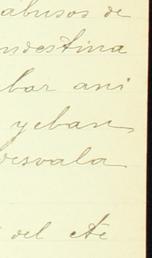 abusos de
ndestina
bar ani
yeban
esvala
del Ate